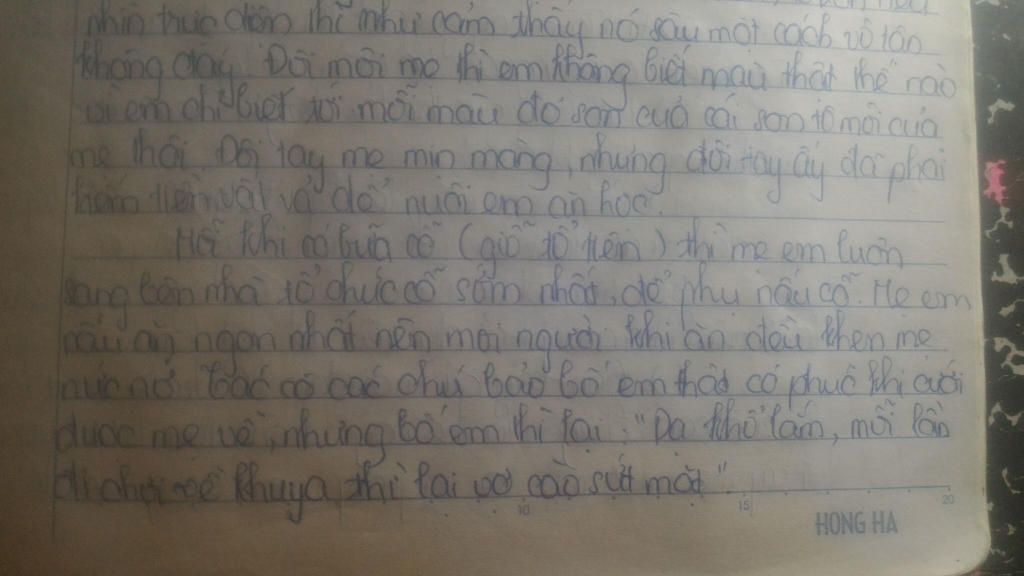 nhìn trực diện thì như cảm thấy nó sâu một cách vô tận
không đáy. Đôi môi mẹ thì em không biết màu thật thế nào
vì em chỉ biết tới mỗi màu đỏ son của cái son tô môi của
mẹ thôi. Đôi tay mẹ mịn màng, nhưng đôi tay ấy đã phải
kiếm tiền vất vả để nuôi em ăn học.
Mỗi khi có bữa cỗ (giỗ tổ tiên) thì mẹ em luôn
sang bên nhà tổ chức cỗ sớm nhất, để phụ nấu cỗ. Mẹ em
nấu ăn ngon nhất nên mọi người khi ăn đều khen mẹ
nức nở. Các cô các chú bảo bố em thật có phúc khi cưới
được mẹ về, nhưng bố em thì lại: "Dạ khổ lắm, mỗi lần
đi chơi về khuya thì lại vợ cào sứt mặt".
10 15 20
HONG HA